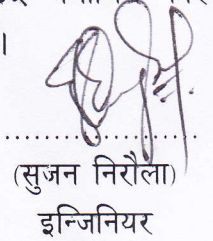 ।
....................
(सुजन निरौला)
इन्जिनियर